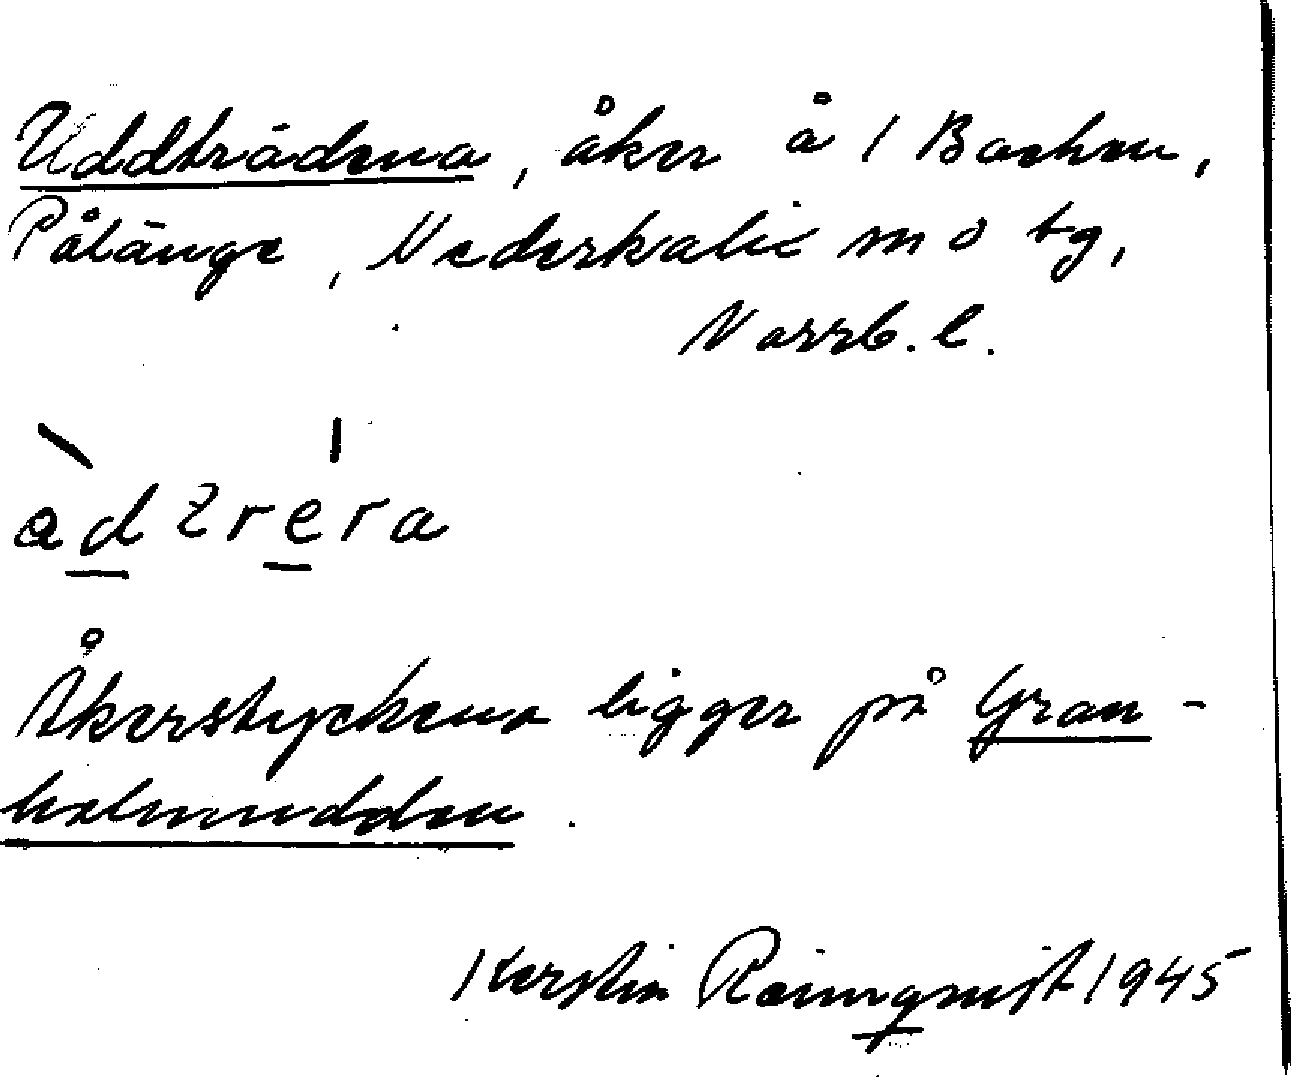 Uddträdena, åker å 1 Backen,
Pålänge, Nederkalix sn o tg,
Norrb. l.
Åkerstyckena ligger på Gran-
holmudden.
Kerstin Reinqvist 1945